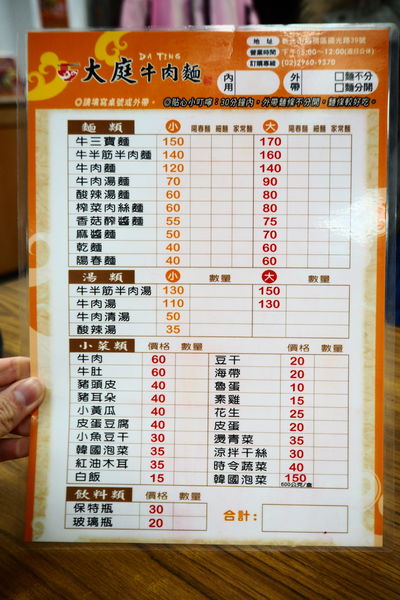 大庭牛肉麵
DA TING
地址 新北市板橋區國光路39號
營業時間 下午05:00~12:00(週日公休)
訂購專線 (02)2960-9370
內用 外帶 □麵不分 □麵分開
◎請填寫桌號或外帶。 ◎貼心小叮嚀:30分鐘內,外帶麵條不分開,麵條較好吃。
麵類 小 陽春麵 細麵 家常麵 大 陽春麵 細麵 家常麵
牛三寶麵 150 170
牛半筋半肉麵 140 160
牛肉麵 120 140
牛肉湯麵 70 90
酸辣湯麵 60 80
榨菜肉絲麵 60 80
香菇醡醬麵 55 75
麻醬麵 50 70
乾麵 40 60
陽春麵 40 60
湯類 小 數量 大 數量
牛半筋半肉湯 130 150
牛肉湯 110 130
牛肉清湯 50
酸辣湯 35
小菜類 價格 數量 價格 數量
牛肉 60 豆干 20
牛肚 60 海帶 20
豬頭皮 40 魯蛋 10
豬耳朵 40 素雞 15
小黃瓜 40 花生 25
皮蛋豆腐 40 皮蛋 20
小魚豆干 30 燙青菜 35
韓國泡菜 35 涼拌干絲 30
紅油木耳 35 時令蔬菜 40
白飯 15 韓國泡菜 150
600公克/盒
飲料類 價格 數量
保特瓶 30
玻璃瓶 20
合計: